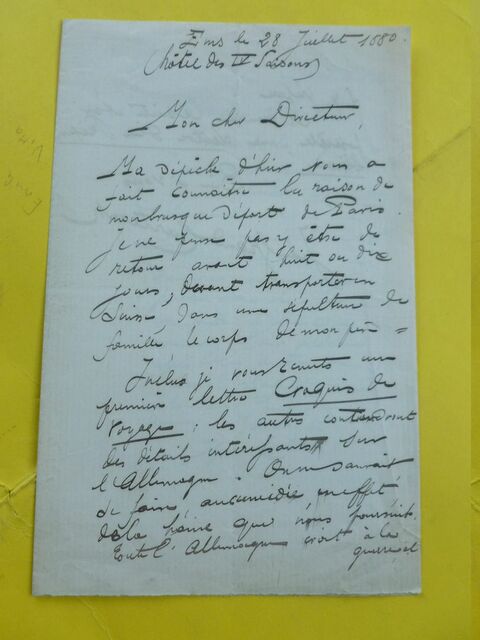 Ems le 28 Juillet 1880.
(hôtel des IV Saisons)
Mon cher Directeur,
Ma dépêche d'hier vous a
fait connaître la raison de
mon brusque départ de Paris.
je ne pense pas y être de
retour avant huit ou dix
jours, devant transporter en
Suisse dans une sépulture de
famille le corps de mon père =
Inclus je vous remets une
première lettre Croquis de
voyage : les autres contiendront
des détails intéressants sur
l'Allemagne. On ne saurait
se faire aucune idée en effet
de la haine que nous poursuit.
Toute l'Allemagne croit à la
guerre et